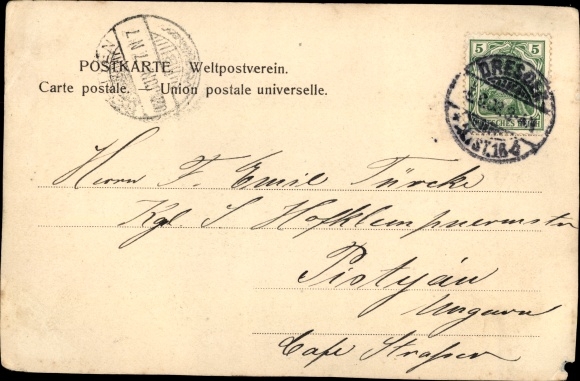 POSTKARTE Weltpostverein.
Carte postale. Union postale universelle.
5 5
DRESDEN
Herrn F. Emil Türcke
Kgl S Hofklempnermstr
Pistyán
Ungarn
Cafe Strasser